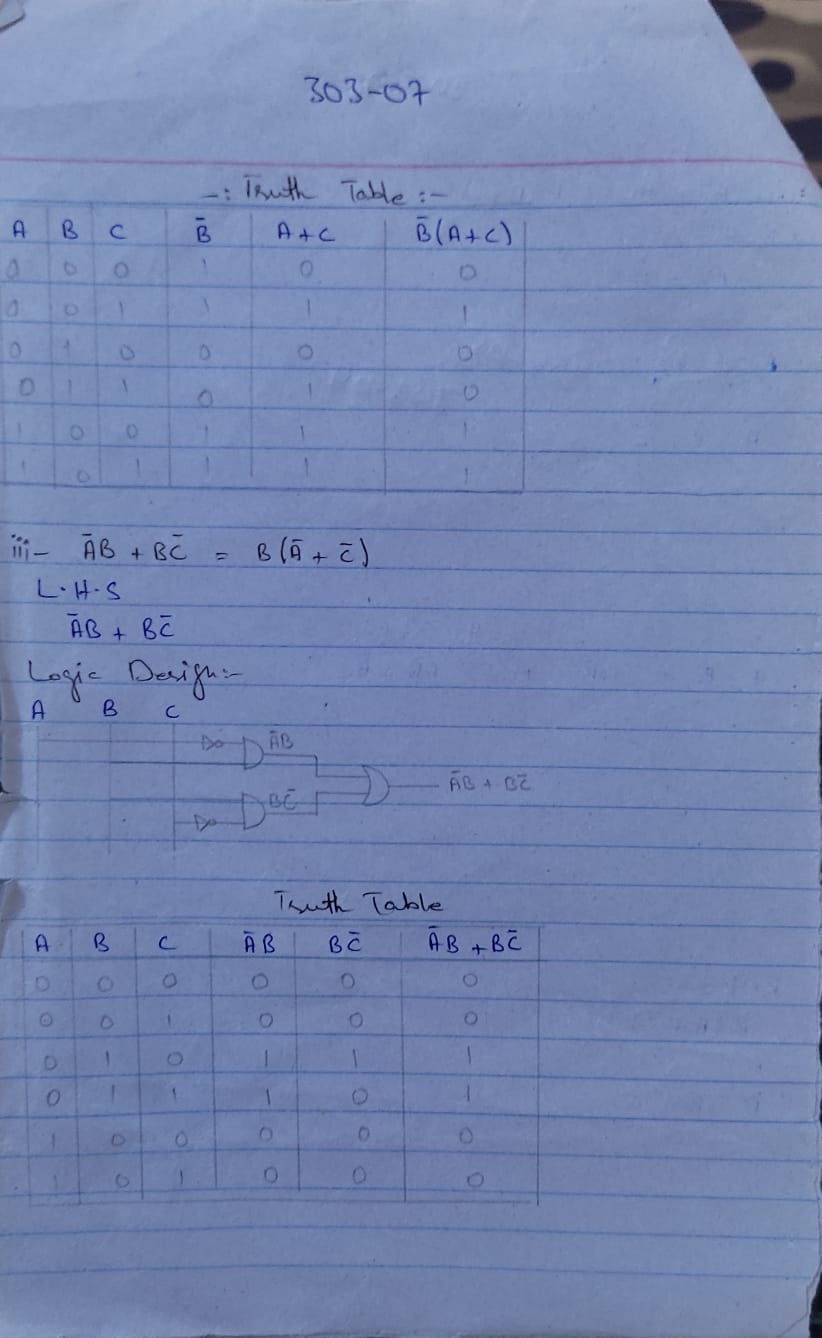 303-07
-: Truth Table :-
A B C B̄ A+C B̄(A+C)
0 0 0 1 0 0
0 0 1 1 1 1
0 1 0 0 0 0
0 1 1 0 1 0
1 0 0 1 1 1
1 0 1 1 1 1
iii- ĀB + BC̄ = B(Ā + C̄)
L.H.S
ĀB + BC̄
Logic Design:-
A B C
ĀB
ĀB + BC̄
BC̄
Truth Table
A B C ĀB BC̄ ĀB + BC̄
0 0 0 0 0 0
0 0 1 0 0 0
0 1 0 1 1 1
0 1 1 1 0 1
1 0 0 0 0 0
1 0 1 0 0 0